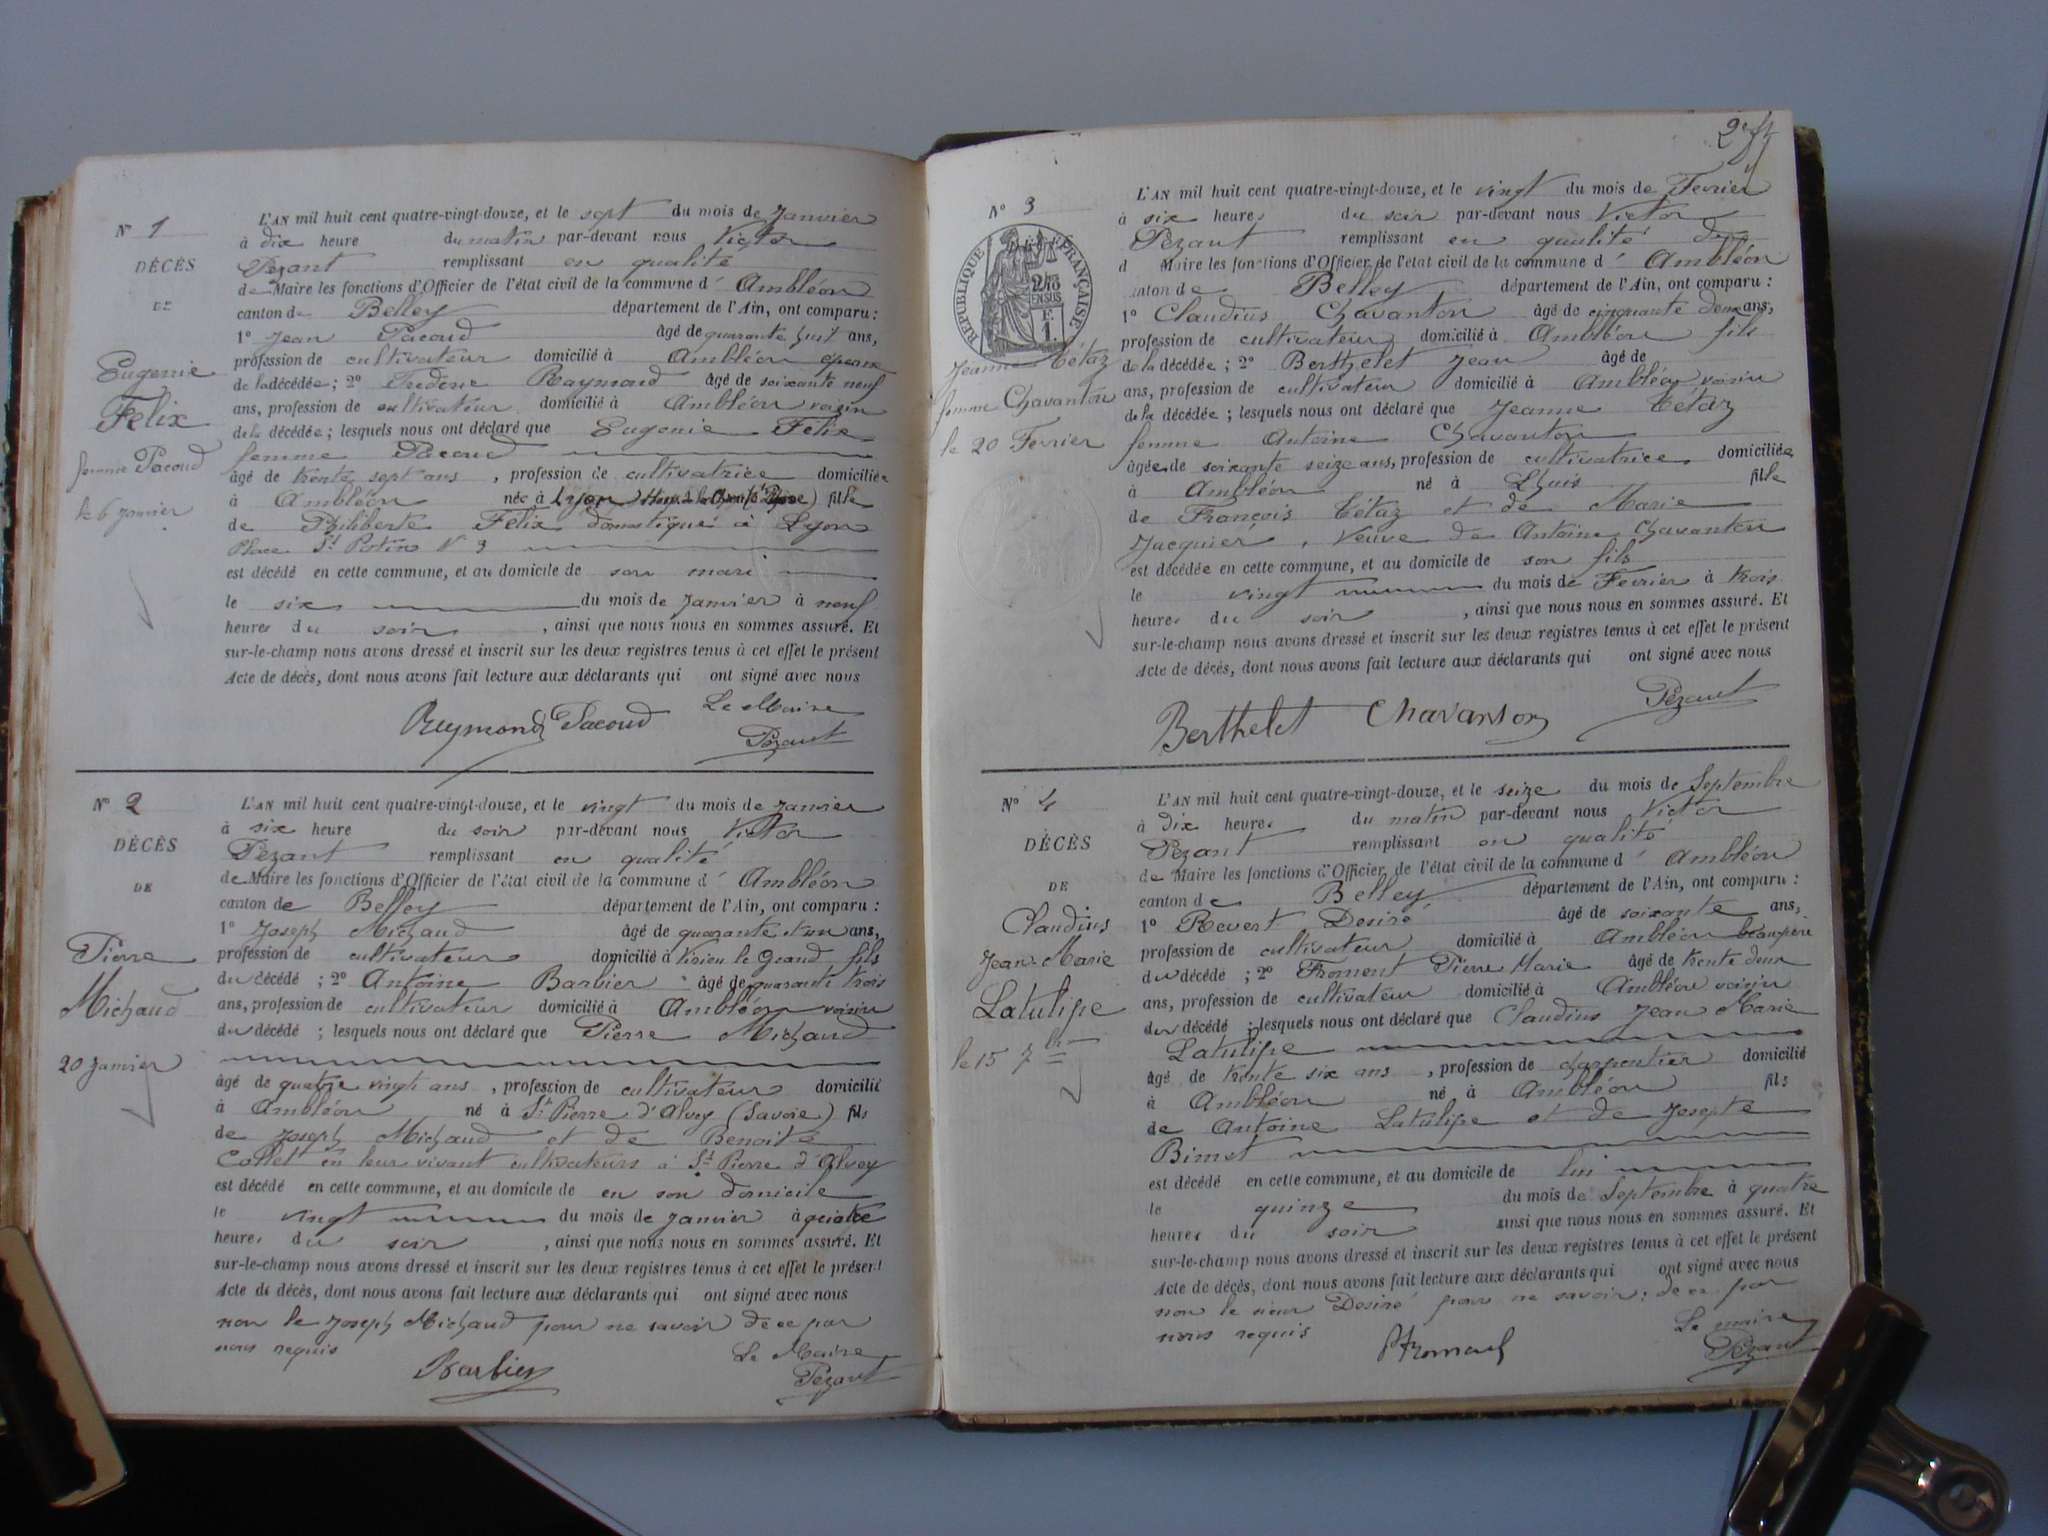 N° 1
DÉCÈS
DE
Eugenie
Felix
femme Pacoud
le 6 Janvier
L'AN mil huit cent quatre-vingt-douze, et le sept du mois de Janvier
à dix heure du matin par-devant nous Victor
Pezant remplissant en qualité
de Maire les fonctions d'Officier de l'état civil de la commune d' Ambléon
canton de Belley département de l'Ain, ont comparu :
1° Jean Pacoud âgé de quarante huit ans,
profession de cultivateur domicilié à Ambléon époux
de la décédée ; 2° Frederic Raymond âgé de soixante neuf
ans, profession de cultivateur domicilié à Ambléon voisin
de la décédée ; lesquels nous ont déclaré que Eugenie Felix
femme Pacoud
âgé de trente sept ans , profession de cultivatrice domiciliée
à Ambléon née à Lyon fille
de Philiberte Felix domestique à Lyon
Place St Potin N° 3
est décédé en cette commune, et au domicile de son mari
le six du mois de Janvier à neuf
heures du soir , ainsi que nous nous en sommes assuré. Et
sur-le-champ nous avons dressé et inscrit sur les deux registres tenus à cet effet le présent
Acte de décès, dont nous avons fait lecture aux déclarants qui ont signé avec nous
Le Maire
Raymond Pacoud Pezant
N° 2
DÉCÈS
DE
Pierre
Michaud
20 Janvier
L'AN mil huit cent quatre-vingt-douze, et le vingt du mois de Janvier
à six heure du soir par-devant nous Victor
Pezant remplissant en qualité
de Maire les fonctions d'Officier de l'état civil de la commune d' Ambléon
canton de Belley département de l'Ain, ont comparu :
1° Joseph Michaud âgé de quarante et un ans,
profession de cultivateur domicilié à Virieu le Grand fils
du décédé ; 2° Antoine Barbier âgé de quarante trois
ans, profession de cultivateur domicilié à Ambléon voisin
du décédé ; lesquels nous ont déclaré que Pierre Michaud
âgé de quatre vingt ans , profession de cultivateur domicilié
à Ambléon né à St Pierre d'Alvey (Savoie) fils
de Joseph Michaud et de Benoite
Collet en leur vivant cultivateurs à St Pierre d'Alvey
est décédé en cette commune, et au domicile de en son domicile
le vingt du mois de Janvier à quatre
heures du soir , ainsi que nous nous en sommes assuré. Et
sur-le-champ nous avons dressé et inscrit sur les deux registres tenus à cet effet le présent
Acte de décès, dont nous avons fait lecture aux déclarants qui ont signé avec nous
non le Joseph Michaud pour ne savoir de ce par
nous requis
Le Maire
Barbier Pezant
N° 3
RÉPUBLIQUE FRANÇAISE
EN SUS
Jeanne Tétaz
femme Chavanton
le 20 Fevrier
L'AN mil huit cent quatre-vingt-douze, et le vingt du mois de Fevrier
à six heures du soir par-devant nous Victor
Pezant remplissant en qualité de
d Maire les fonctions d'Officier de l'état civil de la commune d' Ambléon
canton de Belley département de l'Ain, ont comparu :
1° Claudius Chavanton âgé de cinquante deux ans,
profession de cultivateur domicilié à Ambléon fils
de la décédée ; 2° Berthelet Jean âgé de
ans, profession de cultivateur domicilié à Ambléon voisin
de la décédée ; lesquels nous ont déclaré que Jeanne Tétaz
femme Antoine Chavanton
âgée de soixante seize ans, profession de cultivatrice domiciliée
à Ambléon né à Lhuis fille
de François Tétaz et de Marie
Jacquier , Veuve de Antoine Chavanton
est décédée en cette commune, et au domicile de son fils
le vingt du mois de Fevrier à trois
heures du soir , ainsi que nous nous en sommes assuré. Et
sur-le-champ nous avons dressé et inscrit sur les deux registres tenus à cet effet le présent
Acte de décès, dont nous avons fait lecture aux déclarants qui ont signé avec nous
Berthelet Chavanton Pezant
N° 4
DÉCÈS
DE
Claudius
Jean-Marie
Latulipe
le 15 7bre
L'AN mil huit cent quatre-vingt-douze, et le seize du mois de Septembre
à dix heures du matin par-devant nous Victor
Pezant remplissant en qualité
de Maire les fonctions d'Officier de l'état civil de la commune d' Ambléon
canton de Belley département de l'Ain, ont comparu :
1° Revert Desiré âgé de soixante ans,
profession de cultivateur domicilié à Ambléon beaupère
du décédé ; 2° Froment Pierre Marie âgé de trente deux
ans, profession de cultivateur domicilié à Ambléon voisin
du décédé ; lesquels nous ont déclaré que Claudius Jean Marie
Latulipe
âgé de trente six ans , profession de charpentier domicilié
à Ambléon né à Ambléon fils
de Antoine Latulipe et de Josepte
Bimet
est décédé en cette commune, et au domicile de lui
le quinze du mois de Septembre à quatre
heures du soir ainsi que nous nous en sommes assuré. Et
sur-le-champ nous avons dressé et inscrit sur les deux registres tenus à cet effet le présent
Acte de décès, dont nous avons fait lecture aux déclarants qui ont signé avec nous
non le sieur Desiré pour ne savoir : de ce par
nous requis
Le maire
Froment Pezant